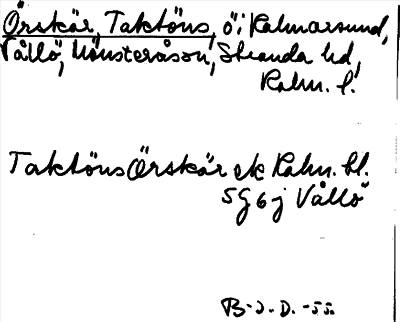 Örskär, Taktöns, ö i Kalmarsund,
Vållö, Mönsteråson, Stranda hd,
Kalm. l.
Taktöns Örskär ek Kalm. bl.
5 g 6 j Vållö
B-J. D. -55.